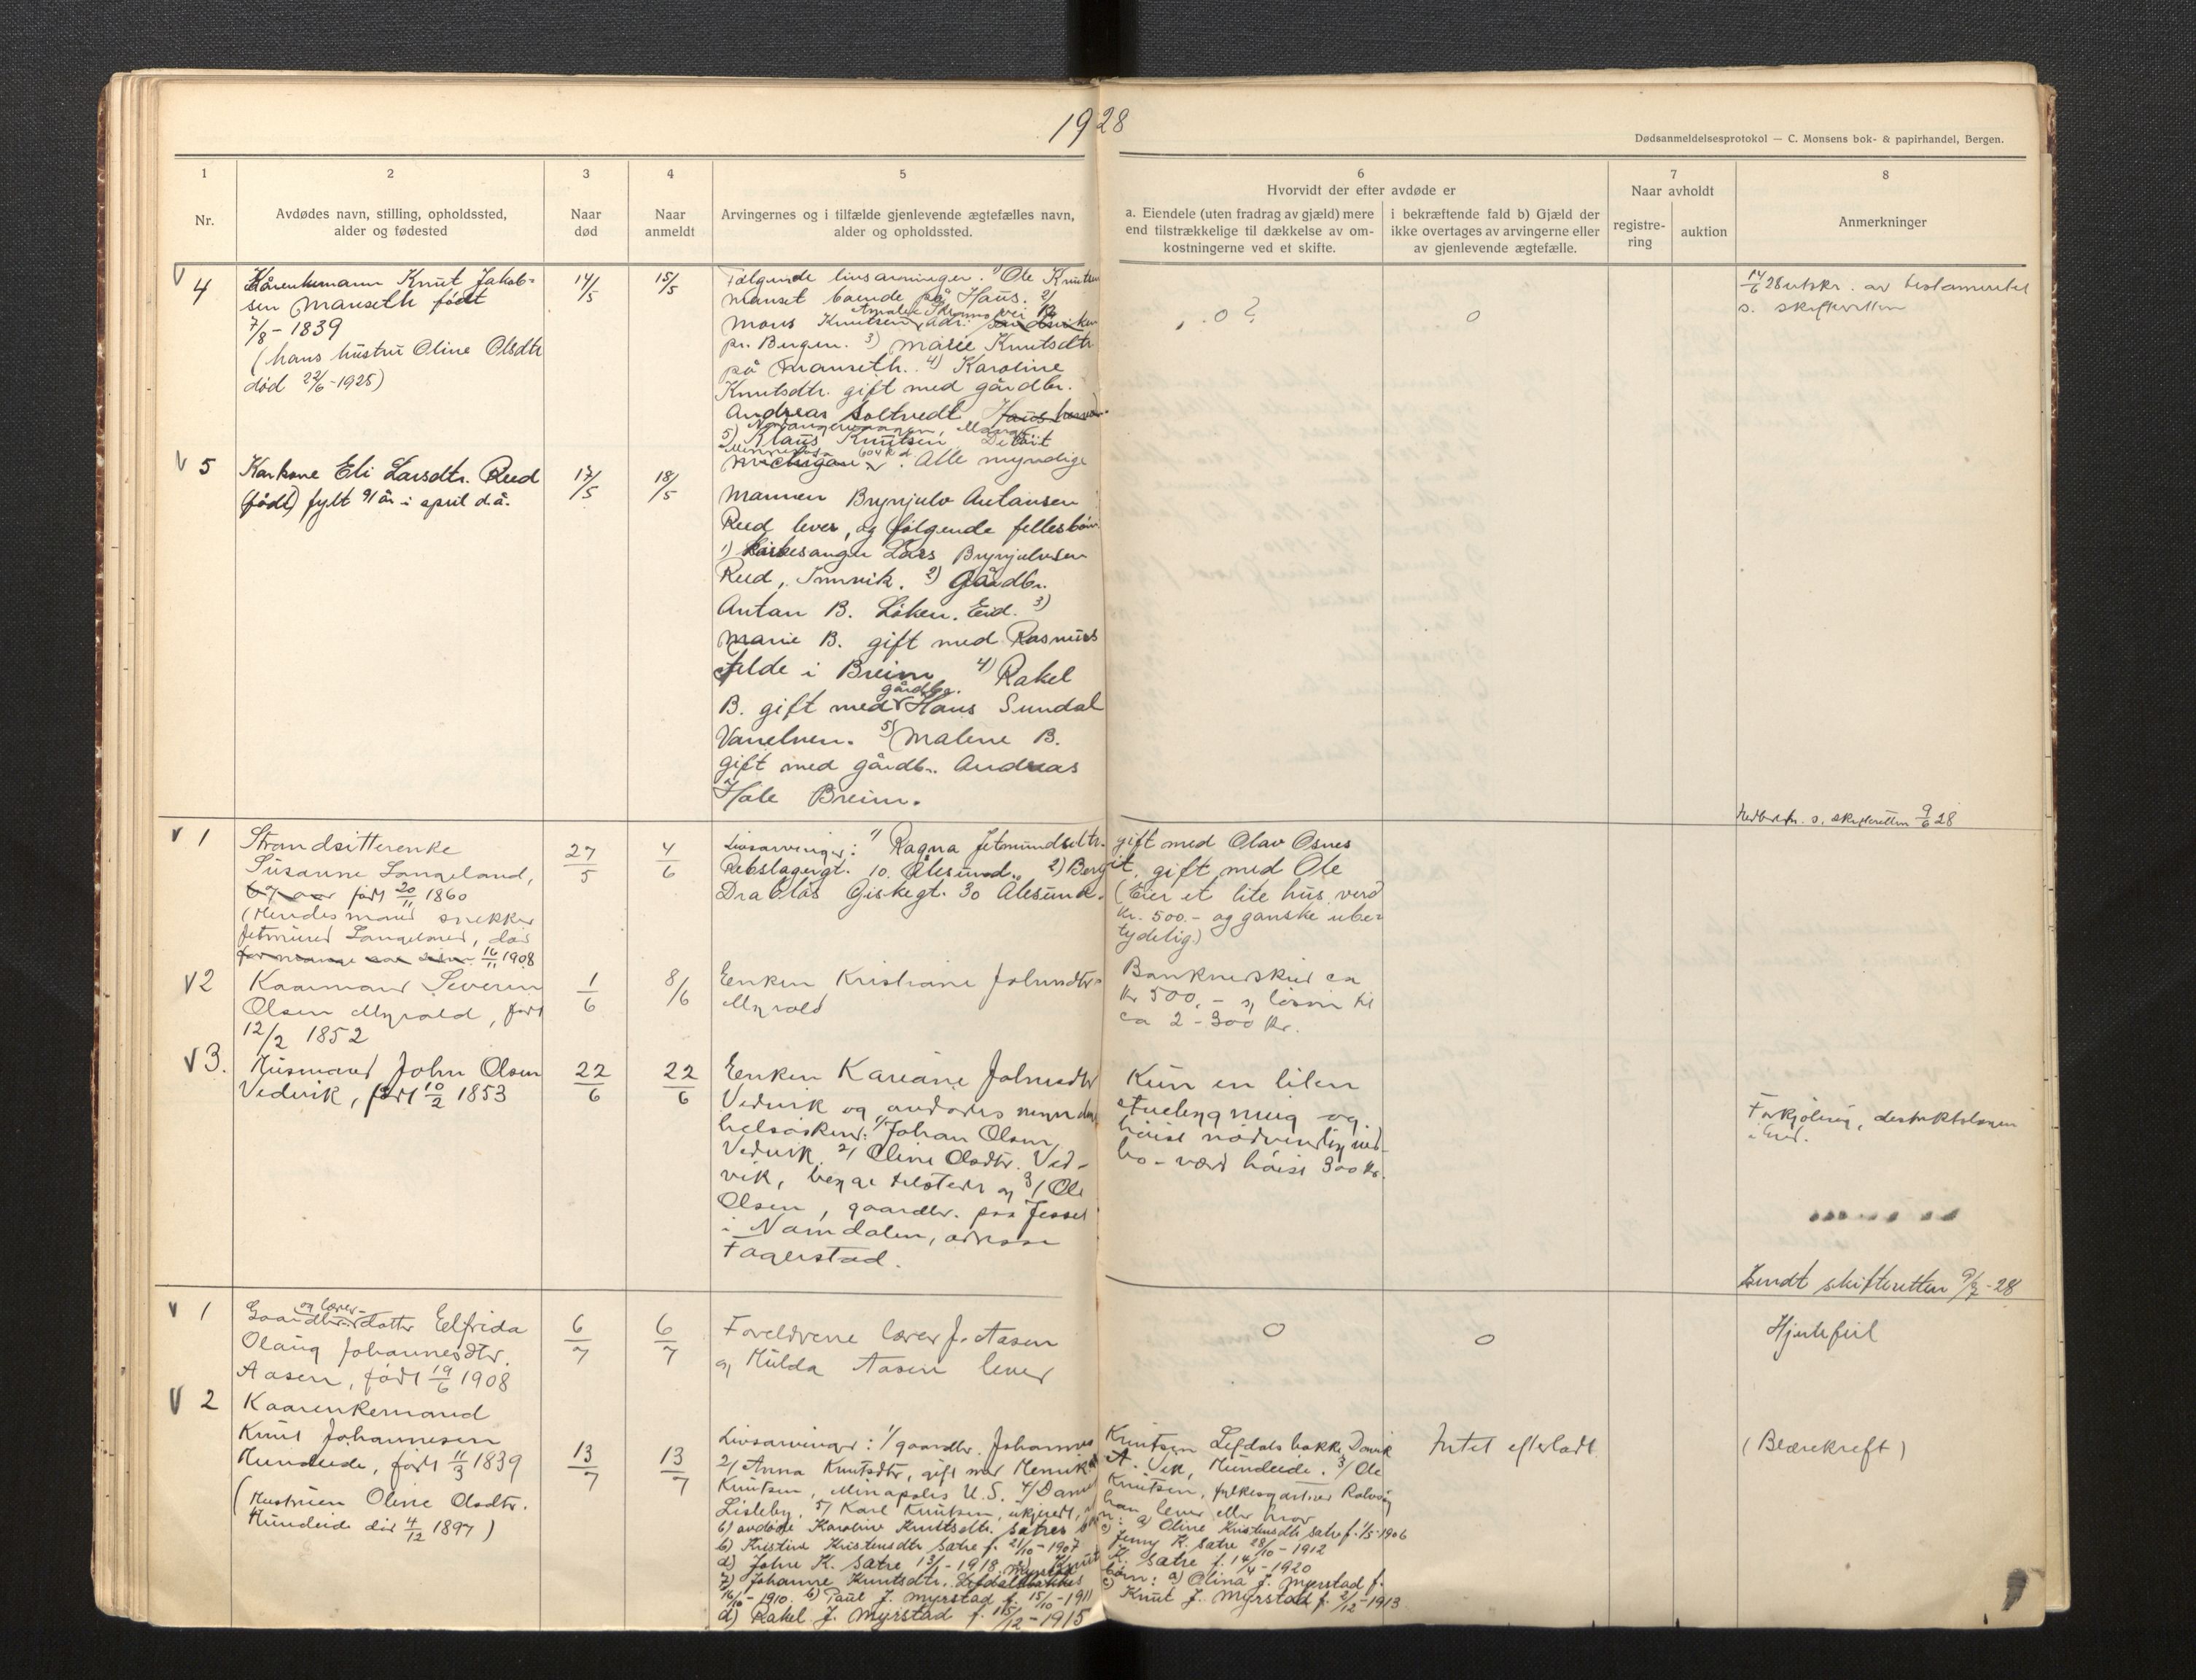 1928
Dødsanmeldelsesprotokol — C. Monsens bok- & papirhandel, Bergen.
1
2
3
4
5
6
7
8
Nr.
Avdødes navn, stilling, opholdssted,
alder og fødested
Naar
død
Naar
anmeldt
Arvingernes og i tilfælde gjenlevende ægtefælles navn,
alder og opholdssted.
Hvorvidt der efter avdøde er
a. Eiendele (uten fradrag av gjæld) mere
end tilstrækkelige til dækkelse av om-
kostningerne ved et skifte.
i bekræftende fald b) Gjæld der
ikke overtages av arvingerne eller
av gjenlevende ægtefælle.
Naar avholdt
registre-
ring
auktion
Anmerkninger
V 4
Kårenkemann Knut Jakob-
sen Manseth født
7/8 - 1839
(hans hustru Oline Olsdtr
død 22/6 - 1925)
14/5
15/5
Følgende livsarvinger. 1) Ole Knutsen
Manset boende på Haus. 2)
Mons Knutsen, adr.
pr. Bergen. 3) Marie Knutsdtr
på Manseth. 4) Karoline
Knutsdtr. gift med gårdbr.
Andreas Soltvedt
5) Klaus Knutsen
Michigan. Alle myndige
0 ?
0
14/6 28 utskr. av testamentet
s. skifteretten
V 5
Karkone Eli Larsdtr. Reed
(født) fylt 91 år i april d.å.
17/5
18/5
Mannen Brynjulv Antansen
Reed lever, og følgende fellesbarn
1) Kirkesanger Lars Brynjulvsen
Reed, Innvik. 2) Gårdbr.
Antan B. Løken. Eid. 3)
Marie B. gift med Rasmus
Felde i Breim 4) Rakel
gårdbr.
B. gift med Hans Sundal
Vanelven. 5) Malene B.
gift med gårdb. Andreas
Hole Breim.
s. skifteretten 9/6 28
V 1
Strandsitterenke
Susanne Langeland,
født 20/11 1860
(Hendes mand snekker
Jetmund Langeland, død
16/11 1908
27/5
4/6
Livsarvinger: 1) Ragna Jetmundsdtr. gift med Olav Osnes
Rebslagergt. 10. Ålesund. 2) Bergit, gift med Ole
Drabløs Giskegt. 30 Ålesund.
(Eier et lite hus verd
kr. 500.- og ganske ube-
tydelig)
V 2
Kaarmand Severin
Olsen Myrold, født
12/2 1852
1/6
8/6
Enken Kristiane Johnsdtr.
Myrold
Bankindskud ca
kr 500,- og løsøre til
ca 2-300 kr.
V 3.
Husmand John Olsen
Vedvik, født 10/2 1853
22/6
22/6
Enken Kariane Johnsdtr
Vedvik og avdødes myndige
helsøsken: 1/ Johan Olsen,
Vedvik. 2/ Oline Olsdtr. Ved-
vik, begge tilsteder og 3/ Ole
Olsen, gaardbr. paa
i Namdalen, adresse
Fagerstad.
Kun en liten
stuebygning og
høist nødvendig ind-
bo - værd høist 300 kr.
Forkjøling,
Sendt skifteretten 9/7 - 28
V 1
og lærer-
Gaardbr. datter Elfrida
Olaug Johannesdtr.
Aasen, født 19/6 1908
6/7
6/7
Foreldrene lærer J. Aasen
og Hulda Aasen lever
0
0
Hjertefeil
V 2
Kaarenkemand
Knut Johannesen
Hundeide, født 11/3 1839
(Hustruen Oline Olsdtr.
Hundeide død 4/12 1897)
13/7
13/7
Livsarvinger: 1/ gaardbr. Johannes Knutsen Lefdalsbakke Davik
2/ Anna Knutsdtr, gift med Henrik A. Vik, Hundeide. 3/ Ole
Knutsen, Minapolis U.S. 4/ Daniel Knutsen, fylkesgartner Ralvåg
Lisleby. 5/ Karl Knutsen, ukjent, om han lever eller hvor
6) avdøde Karoline Knutsdtr. Sætres barn: a) Oline Kristensdtr Sætre f. 1/5-1906
b) Kristine Kristensdtr Sætre f. 21/10 - 1907 c) Jenny K. Sætre 28/10 - 1912
d) Johne K. Sætre 13/1 - 1918. e) Knut K. Sætre f. 14/4 - 1920
7) Johanne Knutsdtr. Myrstad barn: a) Olina J. Myrstad f.
16/10 - 1910. b) Paul J. Myrstad f. 15/10 - 1911 c) Knut J. Myrstad f. 2/12 - 1913
d) Rakel J. Myrstad f. 15/12 - 1915
Intet efterladt
(Blærekreft)